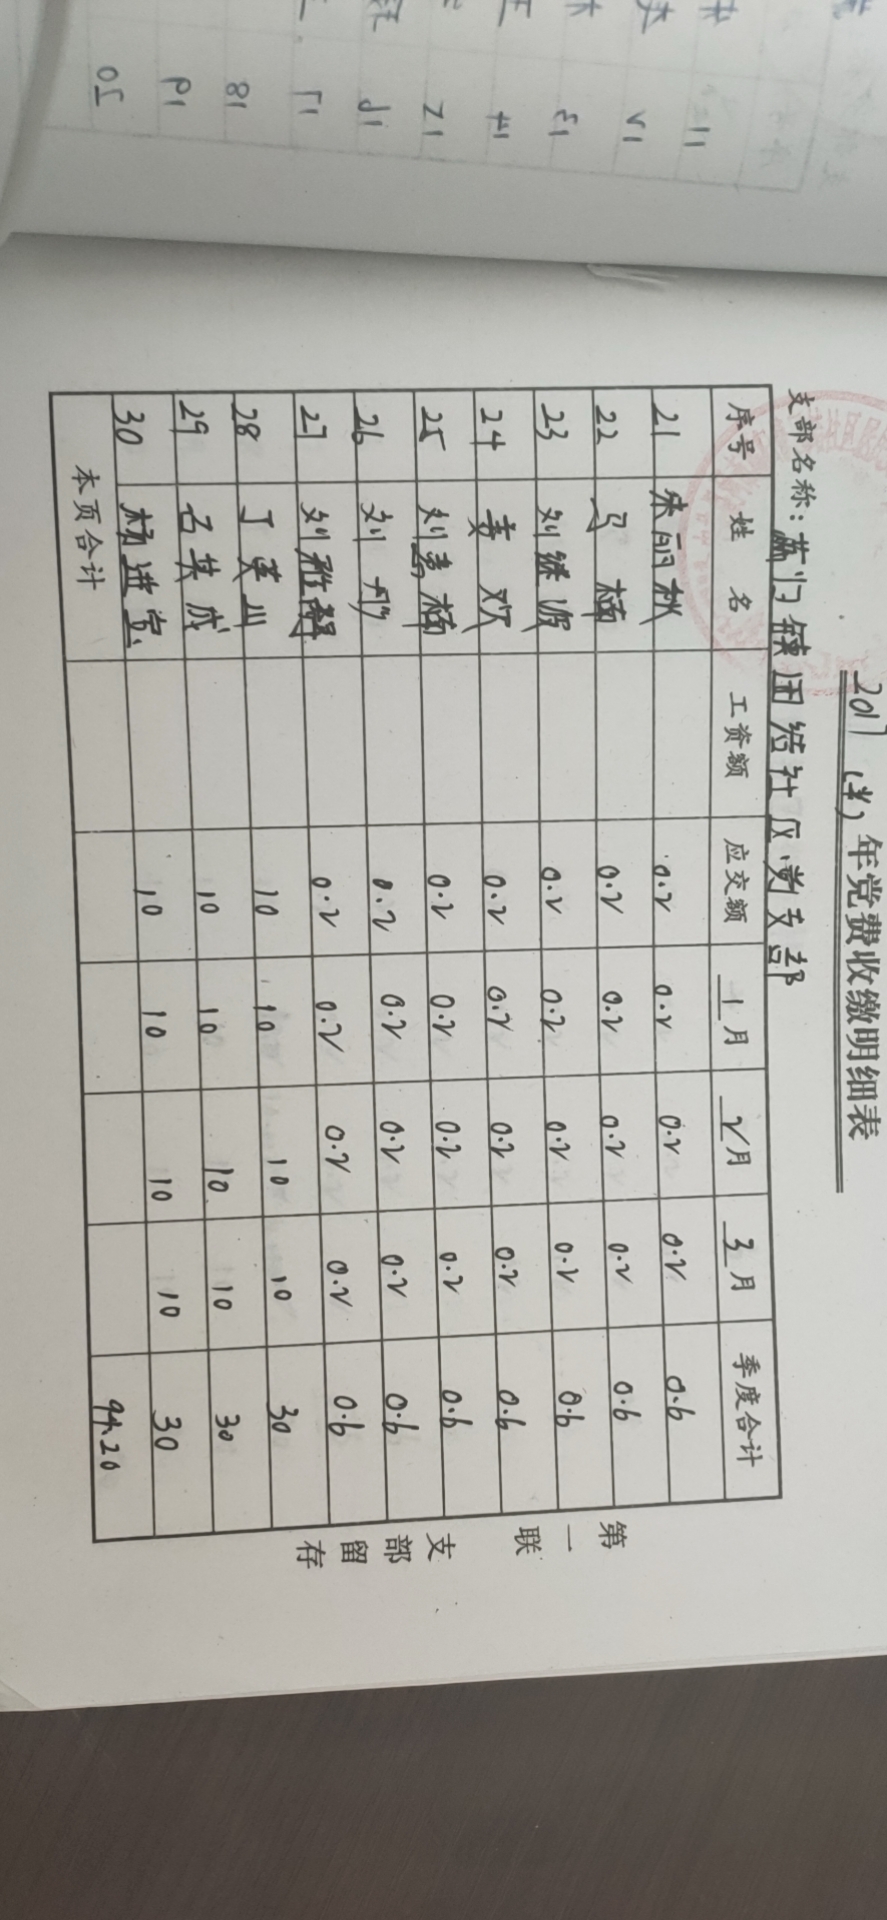 2017 (半) 年党费收缴明细表
支部名称：蓝旗镇团结社区党支部
序号 姓名 工资额 应交额 1月 2月 3月 季度合计
21 朱丽秋 0.2 0.2 0.2 0.2 0.6
22 马楠 0.2 0.2 0.2 0.2 0.6
23 刘继波 0.2 0.2 0.2 0.2 0.6
24 姜欢 0.2 0.2 0.2 0.2 0.6
25 刘春楠 0.2 0.2 0.2 0.2 0.6
26 刘彤 0.2 0.2 0.2 0.2 0.6
27 刘雅馨 0.2 0.2 0.2 0.2 0.6
28 丁英川 10 10 10 10 30
29 石英成 10 10 10 10 30
30 杨进宝 10 10 10 10 30
本页合计 94.20
第一联 支部留存
11
12
13
14
15
16
17
18
19
20